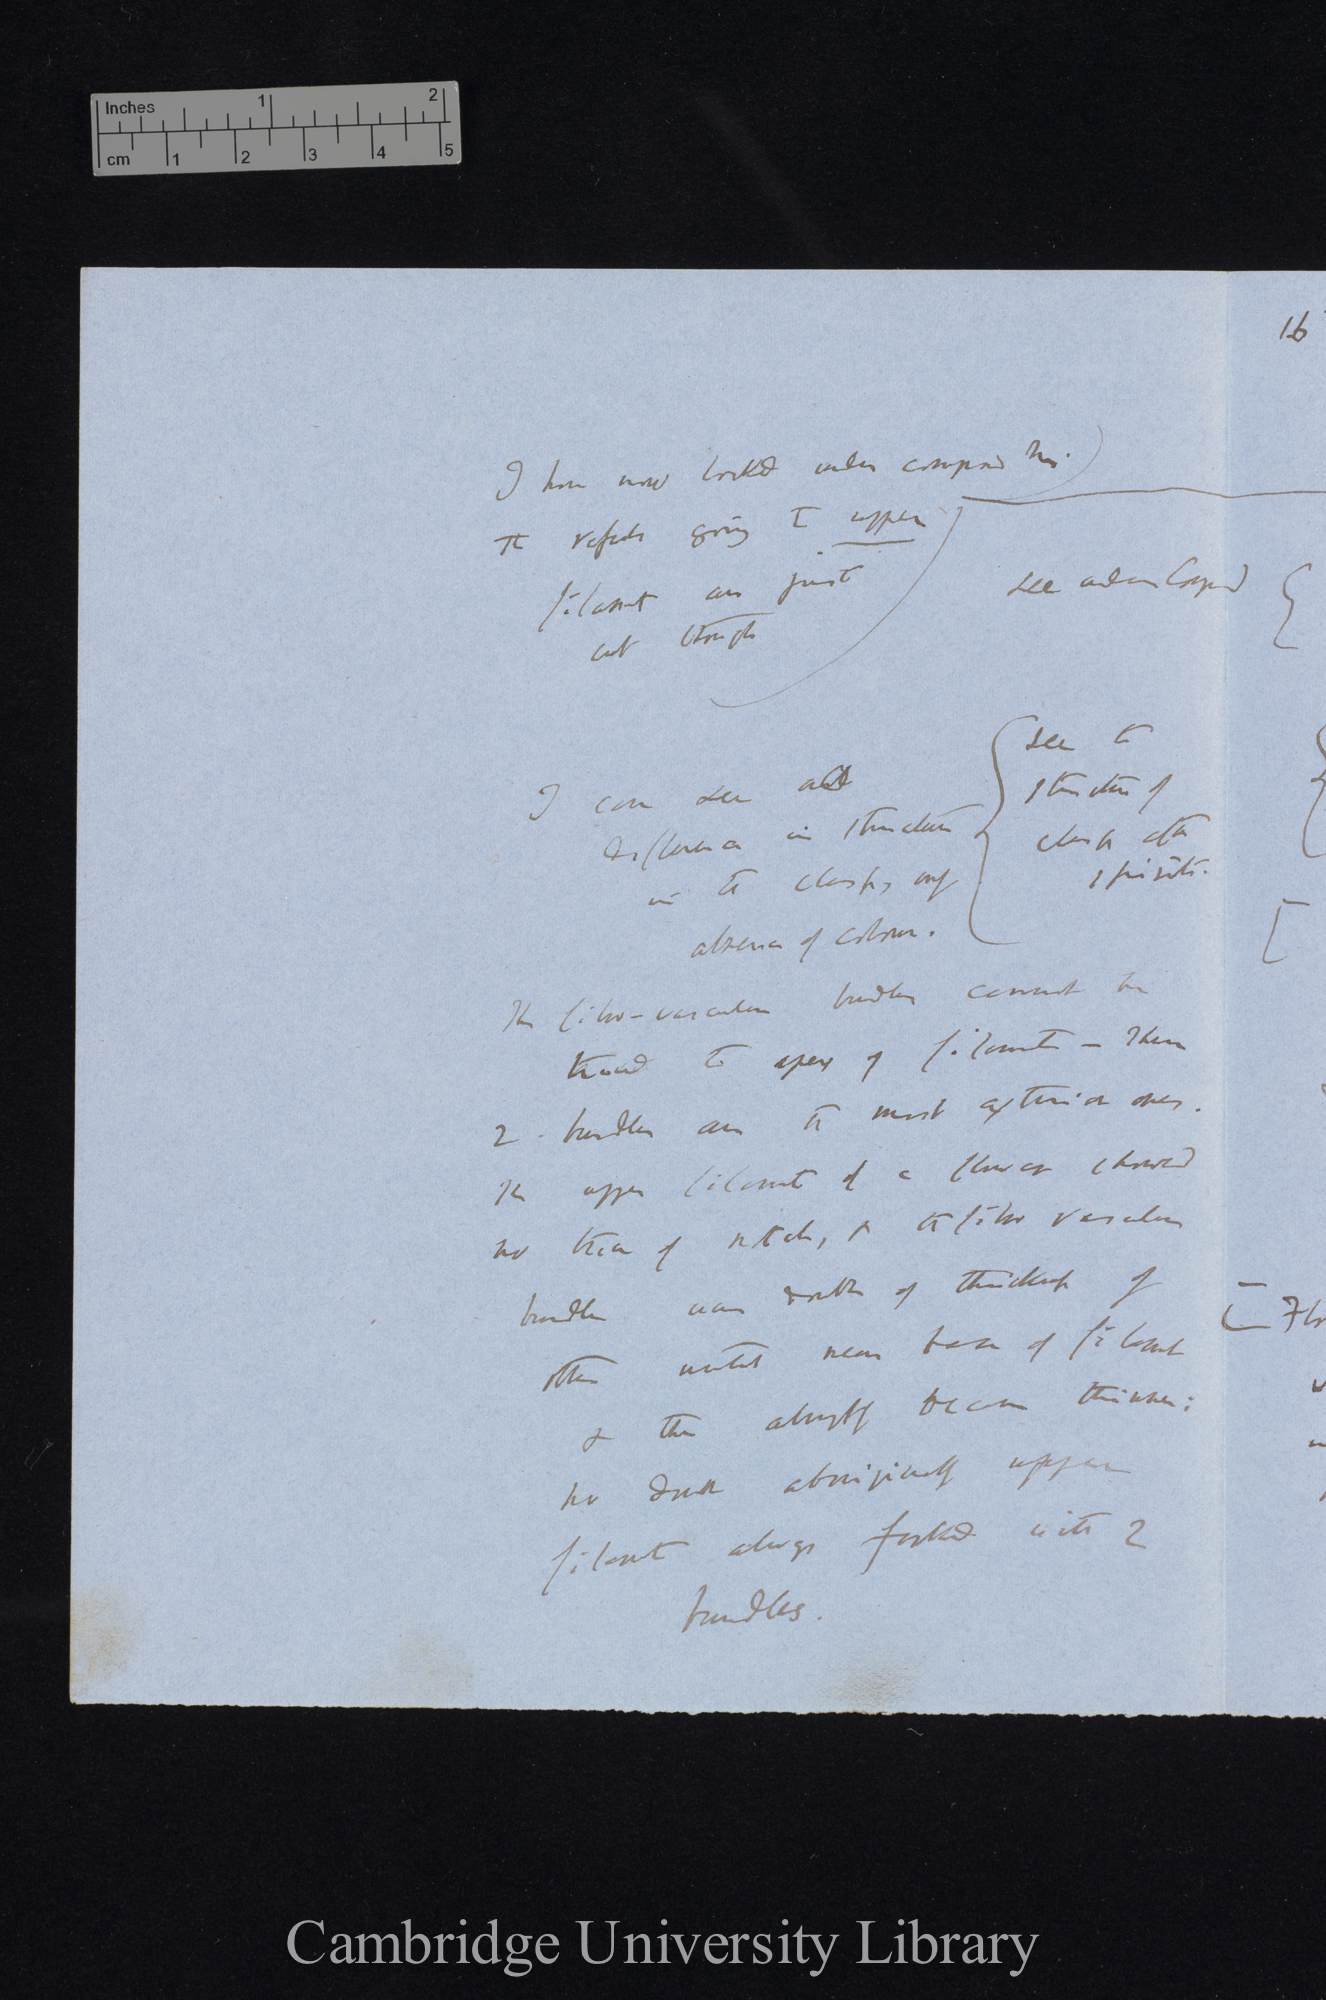 Inches 1 2
cm 1 2 3 4 5
16
I have now looked under compound
going to upper
filament are just
cut through
see under Compd
see the
structure of
clasp after
spirits.
I can see
difference in structure
in the clasps, only
absence of colour.
The fibro-vascular bundles cannot be
traced to apex of filament — These
2 bundles are the most exterior ones.
The upper filament of a flower showed
no trace of notch, & the fibro vascular
bundle was double of thickness of
other until near base of filament
& then abruptly became thinner;
no doubt aboriginally upper
filament always forked with 2
bundles.
Cambridge University Library